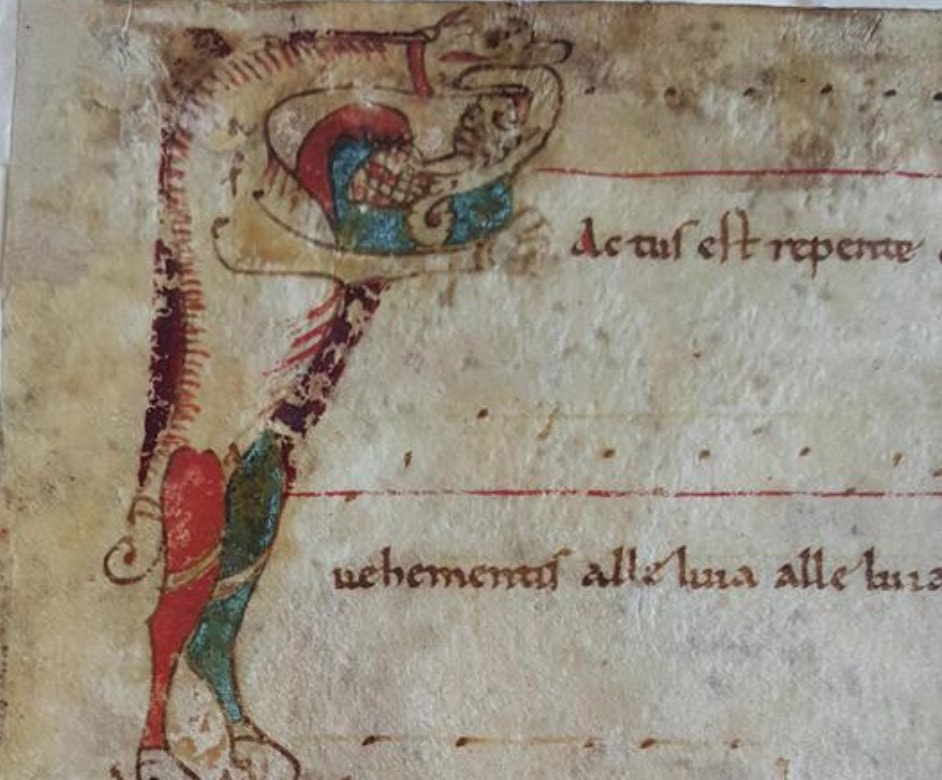 FActus est repente
uehementis alleluia alleluia